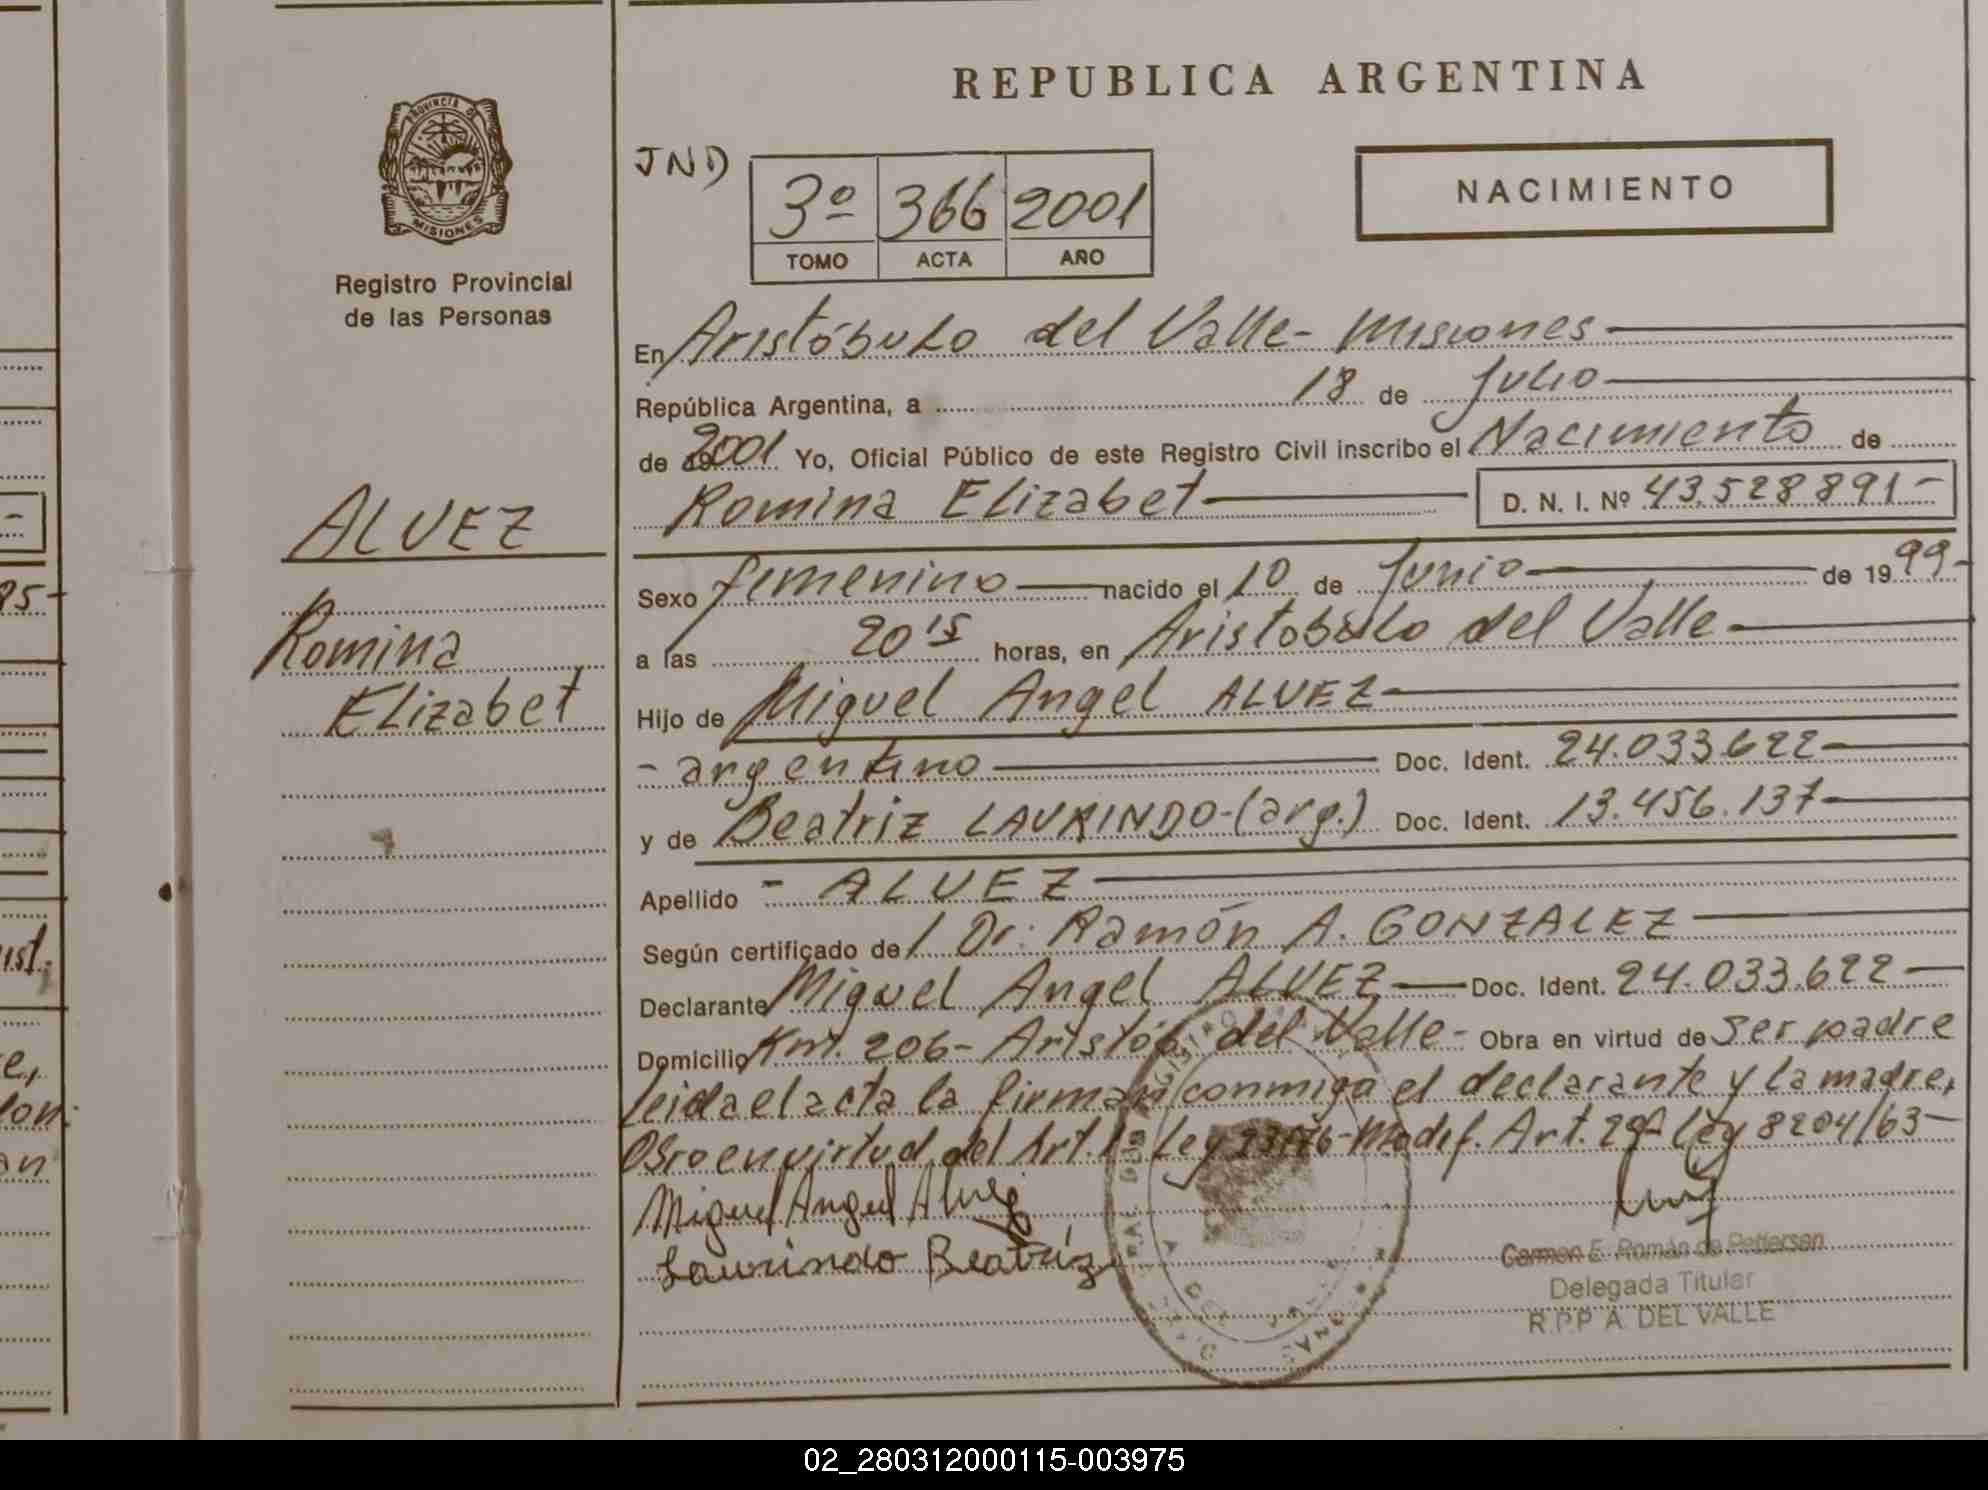 REPUBLICA ARGENTINA
PROVINCIA DE
MISIONES
Registro Provincial
de las Personas
JND
3º 366 2001
TOMO ACTA AÑO
NACIMIENTO
En Aristóbulo del Valle - Misiones
República Argentina, a 18 de Julio
de 2001 Yo, Oficial Público de este Registro Civil inscribo el Nacimiento de
Romina Elizabet D. N. I. Nº 43.528 891 -
ALVEZ
Romina
Elizabet
Sexo femenino nacido el 10 de Junio de 1999 -
a las 20 15 horas, en Aristobulo del Valle -
Hijo de Miguel Angel ALVEZ -
- argentino Doc. Ident. 24.033.622 -
y de Beatriz LAURINDO - (arg.) Doc. Ident. 13.456.137 -
Apellido - ALVEZ
Según certificado de Dr: Ramón A. GONZALEZ
Declarante Miguel Angel ALVEZ Doc. Ident. 24.033.622 -
Domicilio Km. 206 - Aristób. del Valle - Obra en virtud de Ser padre
Leida el acta la firman conmigo el declarante y la madre,
Obro en virtud del Art. 1º Ley 23776 - Modif. Art. 29º Ley 8204/63 -
Miguel Angel Alvez
Laurindo Beatriz
Carmen E. Román de Pettersen
Delegada Titular
R.P.P A. DEL VALLE
95 -
ist.
e,
on:
an
02_280312000115-003975